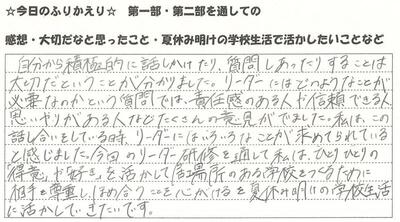 ☆今日のふりかえり☆ 第一部・第二部を通しての
感想・大切だなと思ったこと・夏休み明けの学校生活で活かしたいことなど
自分から積極的に話しかけたり、質問しあったりすることは
大切だということが分かりました。リーダーにはどのようなことが
必要なのかという質問では、責任感のある人や信頼できる人
思いやりがある人などたくさんの意見がでました。私は、この
話し合いをしている時、リーダーにはいろいろなことが求められている
と感じました。今回のリーダー研修を通して私は、ひとりひとりの
"得意"や"好き"を活かして居場所のある学校をつくるために
相手を尊重し、ほめ合うことを心がけるを夏休み明けの学校生活
に活かしていきたいです。